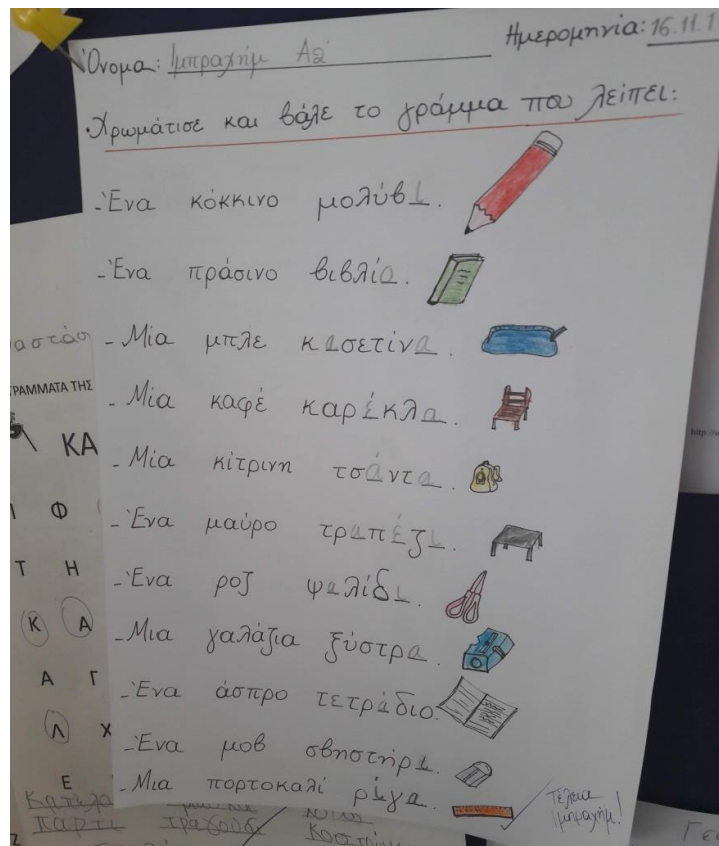 Όνομα: Ιμπραχήμ Α2 Ημερομηνία: 16.11.1
Χρωμάτισε και βάλε το γράμμα που λείπει:
- Ένα κόκκινο μολύβι.
- Ένα πράσινο βιβλία.
- Μία μπλε κασετίνα.
- Μία καφέ καρέκλα.
- Μία κίτρινη τσάντα.
- Ένα μαύρο τραπέζι.
- Ένα ροζ ψαλίδι.
- Μια γαλάζια ξύστρα.
- Ένα άσπρο τετράδιο.
- Ένα μοβ σβηστήρι.
- Μια πορτοκαλί ρίγα.
Τέλεια
Ιμπραχήμ!
ΓΡΑΜΜΑΤΑ ΤΗΣ
ΚΑ
Φ
Τ Η
Κ Α
Α Γ
Λ Χ
Ε
Καπέλο
πάρτι τραγούδι
http://